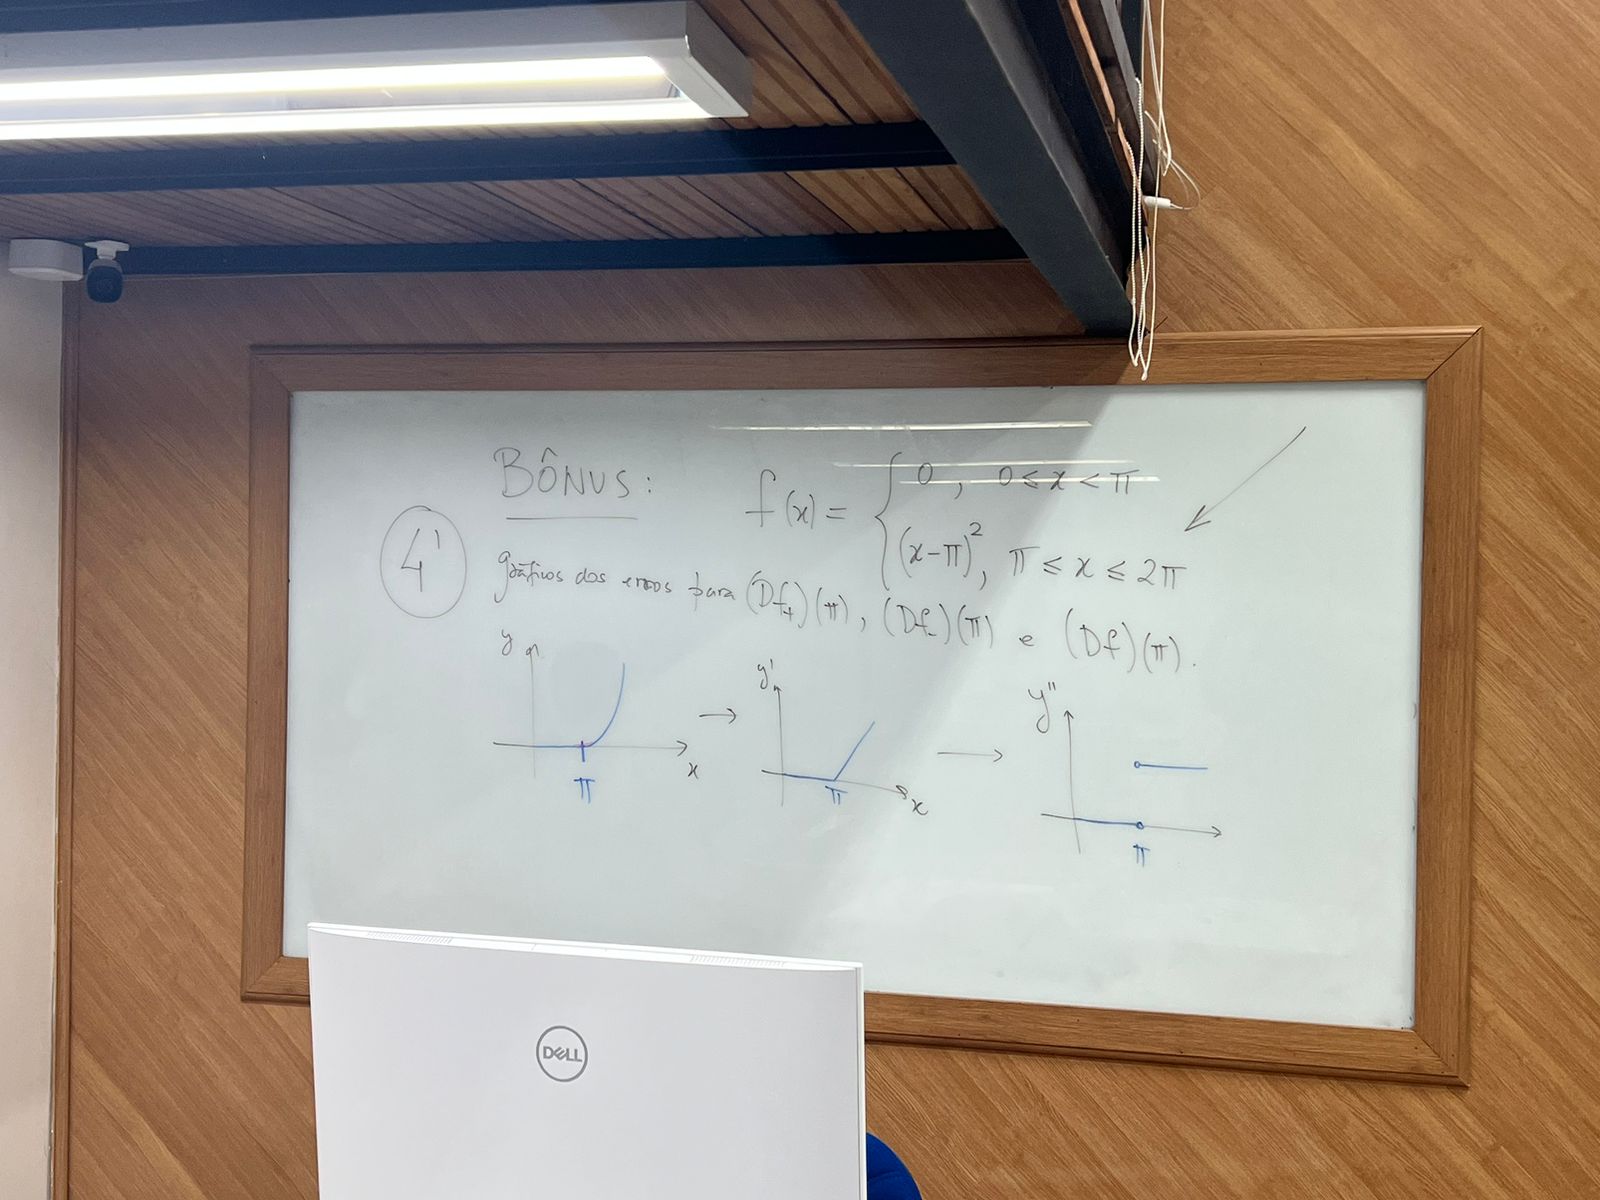 BÔNUS: f(x) = { 0, 0 ≤ x < π
(x-π)², π ≤ x ≤ 2π
4'
gráficos dos erros para (Df₊)(π), (Df₋)(π) e (Df)(π).
y x π
y' x π
y'' π
DELL